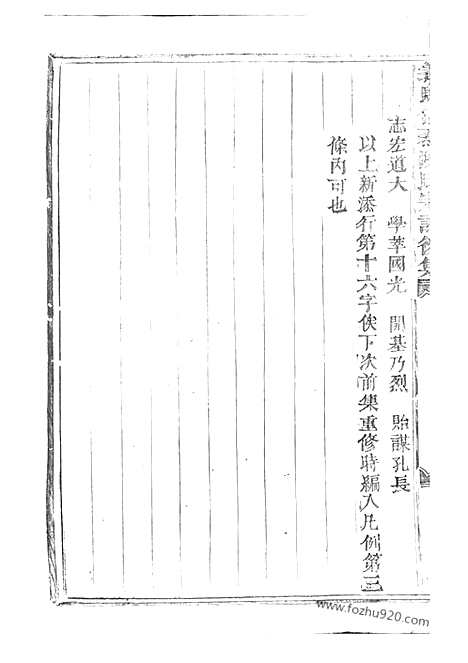 志宏道大 學萃國光 開基乃烈 貽謀孔長
以上新添行第十六字俟下次前集重修時編入凡例第三
條內可也
www.fozhu920.com